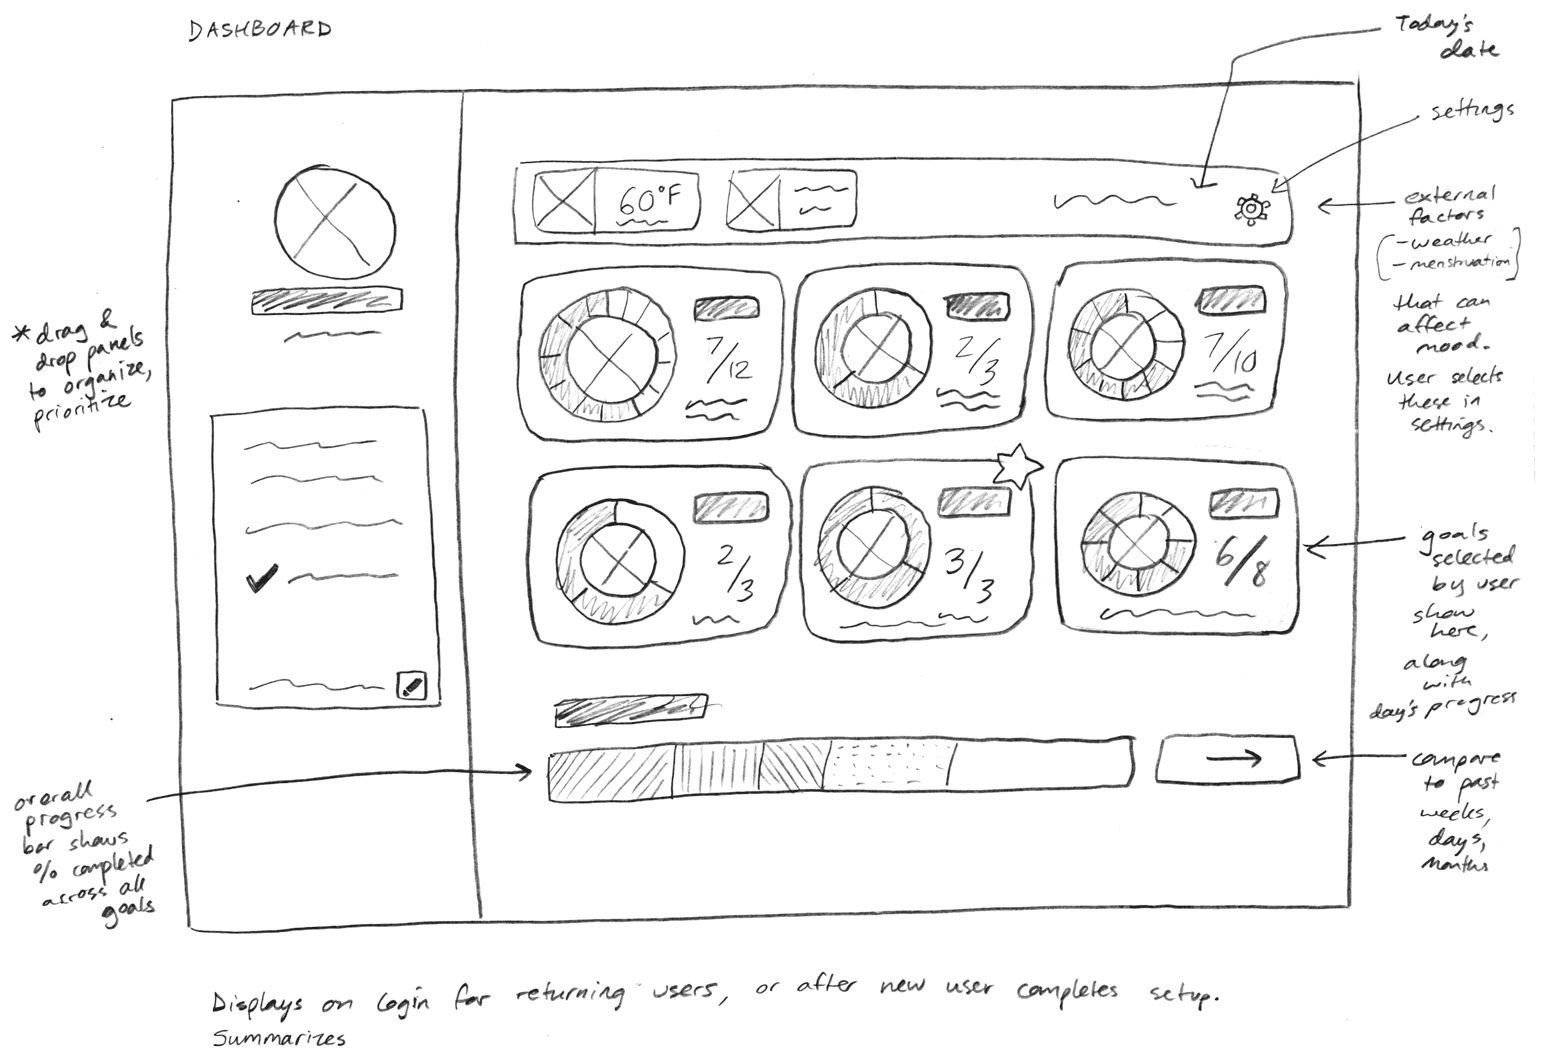 DASHBOARD
Today's
date
settings
external
factors
- weather
- menstruation
that can
affect
mood.
User selects
these in
settings.
60°F
* drag &
drop panels
to organize,
prioritize
7/12
2/3
7/10
2/3
3/3
6/8
goals
selected
by user
show
here,
along
with
day's progress
overall
progress
bar shows
% completed
across all
goals
compare
to past
weeks,
days,
months
Displays on login for returning users, or after new user completes setup.
Summarizes